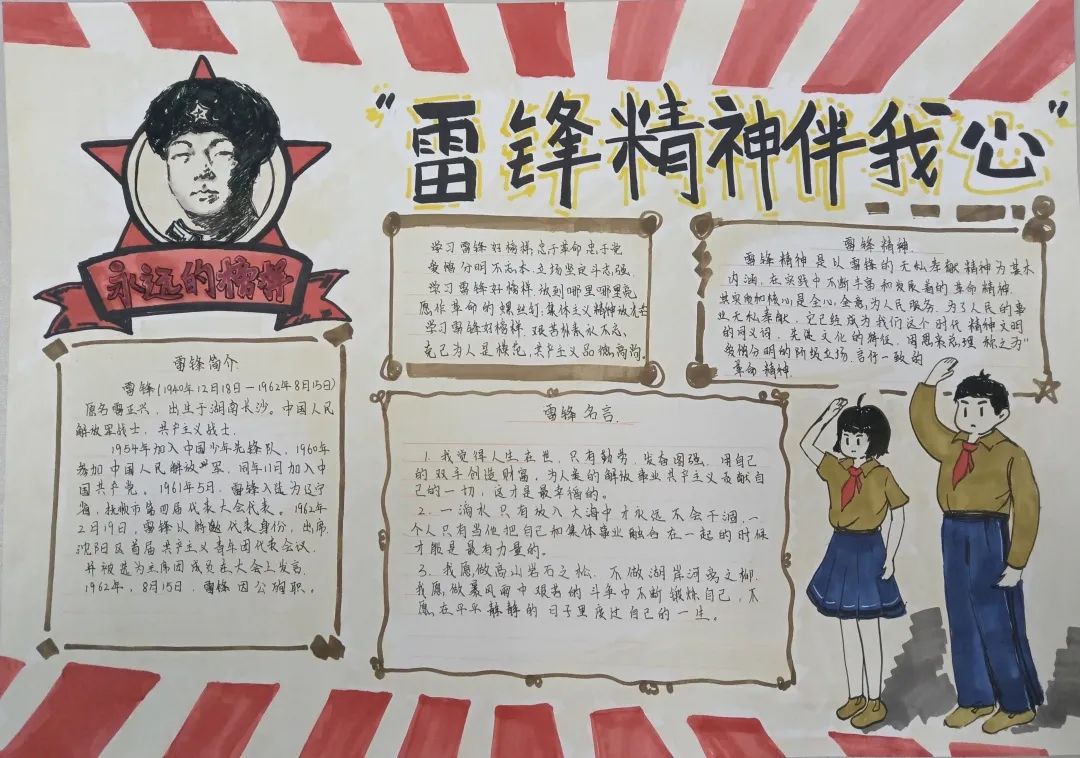 "雷锋精神伴我心"
永远的榜样
雷锋简介
雷锋(1940年12月18日—1962年8月15日)
原名雷正兴,出生于湖南长沙。中国人民
解放军战士,共产主义战士.
1954年加入中国少年先锋队,1960年
参加中国人民解放军,同年11月加入中
国共产党。1961年5月,雷锋入选为辽宁
省,抚顺市第四届代表大会代表。1962年
2月19日,雷锋以特邀代表身份,出席
沈阳区首届共产主义青年团代表会议,
并被选为主席团成员在大会上发言.
1962年,8月15日,雷锋因公殉职。
学习雷锋好榜样,忠于革命忠于党
爱憎分明不忘本,立场坚定斗志强.
学习雷锋好榜样.放到哪里哪里亮
愿作革命的螺丝钉,集体主义精神放光芒
学习雷锋好榜样.艰苦朴素永不忘,
克己为人是模范,共产主义品德高尚.
雷锋精神.
雷锋精神是以雷锋的无私奉献精神为基本
内涵,在实践中不断丰富和发展着的革命精神.
其实质和核心是全心,全意,为人民服务,为了人民的事
业无私奉献.它已经成为我们这个时代精神文明
的同义词,先进文化的特征,周恩来总理称之为"
爱憎分明的阶级立场.言行一致的
革命精神.
雷锋名言.
1.我觉得人生在世,只有勤劳,发奋图强.用自己
的双手创造财富,为人类的解放事业共产主义贡献自
己的一切,这才是最幸福的。
2.一滴水只有放入大海中才永远不会干涸.一
个人只有当他把自己和集体事业融合在一起的时候
才能是最有力量的。
3.我愿做高山岩石之松,不做湖岸河旁之柳.
我愿做暴风雨中艰苦的斗争中不断锻炼自己,不
愿在平平静静的日子里度过自己的一生。